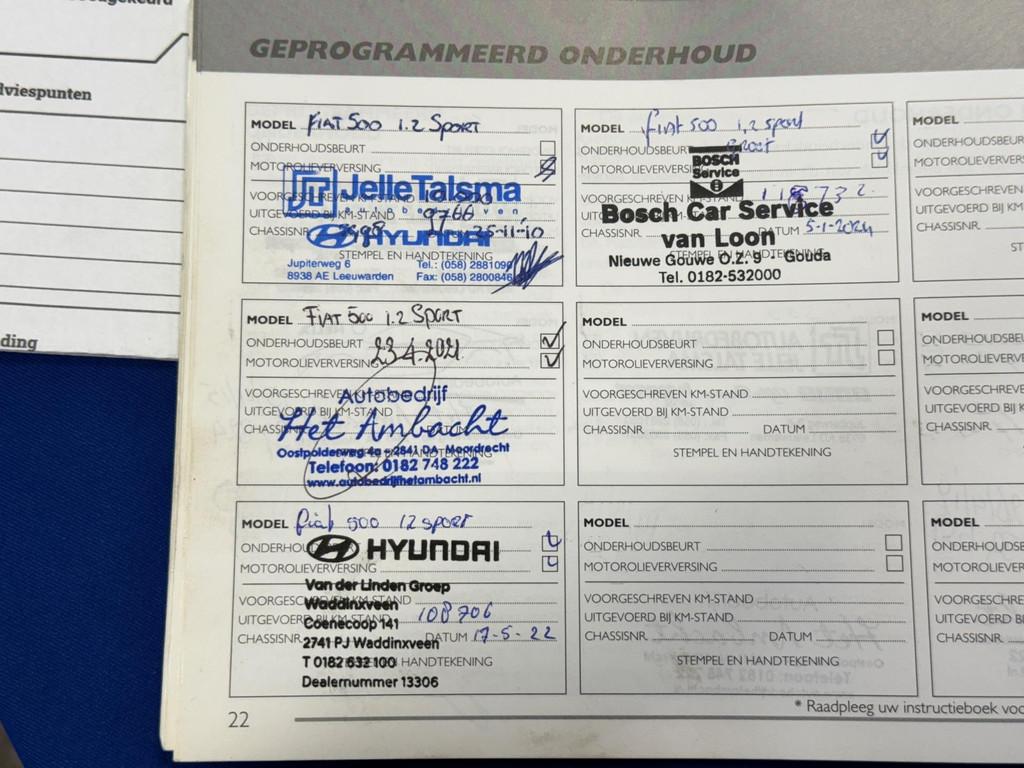 dviespunten
ding
GEPROGRAMMEERD ONDERHOUD
MODEL FIAT 500 1.2 SPORT
ONDERHOUDSBEURT
MOTOROLIEVERVERSING
JT JelleTalsma
VOORGESCHREVEN KM-STAND
UITGEVOERD BIJ KM-STAND 9766
CHASSISNR. 25-11-10
HYUNDAI
STEMPEL EN HANDTEKENING
Jupiterweg 6 Tel.: (058) 2881090
8938 AE Leeuwarden Fax: (058) 2800846
MODEL FIAT 500 1.2 SPORT
ONDERHOUDSBEURT
MOTOROLIEVERVERSING 23.4.2021
VOORGESCHREVEN KM-STAND
Autobedrijf
UITGEVOERD BIJ KM-STAND
Het Ambacht
CHASSISNR.
Oostpolderweg 4a - 2841 DA Moordrecht
Telefoon: 0182 748 222
www.autobedrijfhetambacht.nl
MODEL fiat 500 12 SPORT
ONDERHOUDSBEURT
HYUNDAI
MOTOROLIEVERVERSING
Van der Linden Groep
VOORGESCHREVEN KM-STAND
Waddinxveen
UITGEVOERD BIJ KM-STAND 108706
Coenecoop 141
CHASSISNR. DATUM 17-5-22
2741 PJ Waddinxveen
STEMPEL EN HANDTEKENING
T 0182 632 100
Dealernummer 13306
22
MODEL fiat 500 1,2 sport
ONDERHOUDSBEURT groot
MOTOROLIEVERVERSING
BOSCH
Service
VOORGESCHREVEN KM-STAND
Bosch Car Service
CHASSISNR. DATUM 5-1-2024
van Loon
STEMPEL EN HANDTEKENING
Nieuwe Gouwe O.z. 9 Gouda
Tel. 0182-532000
MODEL
ONDERHOUDSBEURT
MOTOROLIEVERVERSING
VOORGESCHREVEN KM-STAND
UITGEVOERD BIJ KM-STAND
CHASSISNR. DATUM
STEMPEL EN HANDTEKENING
MODEL
ONDERHOUDSBEURT
MOTOROLIEVERVERSING
VOORGESCHREVEN KM-STAND
UITGEVOERD BIJ KM-STAND
CHASSISNR. DATUM
STEMPEL EN HANDTEKENING
* Raadpleeg uw instructieboek voo
MODEL
ONDERHOUDSBEU
MOTOROLIEVERS
VOORGESCHREVEN
UITGEVOERD BIJ KM
CHASSISNR.
ST
MODEL
ONDERHOUDSBE
MOTOROLIEVERVE
VOORGESCHREVE
UITGEVOERD BIJ K
CHASSISNR.
MODEL
ONDERHOUDSB
MOTOROLIEVER
VOORGESCHREV
UITGEVOERD BIJ
CHASSISNR.